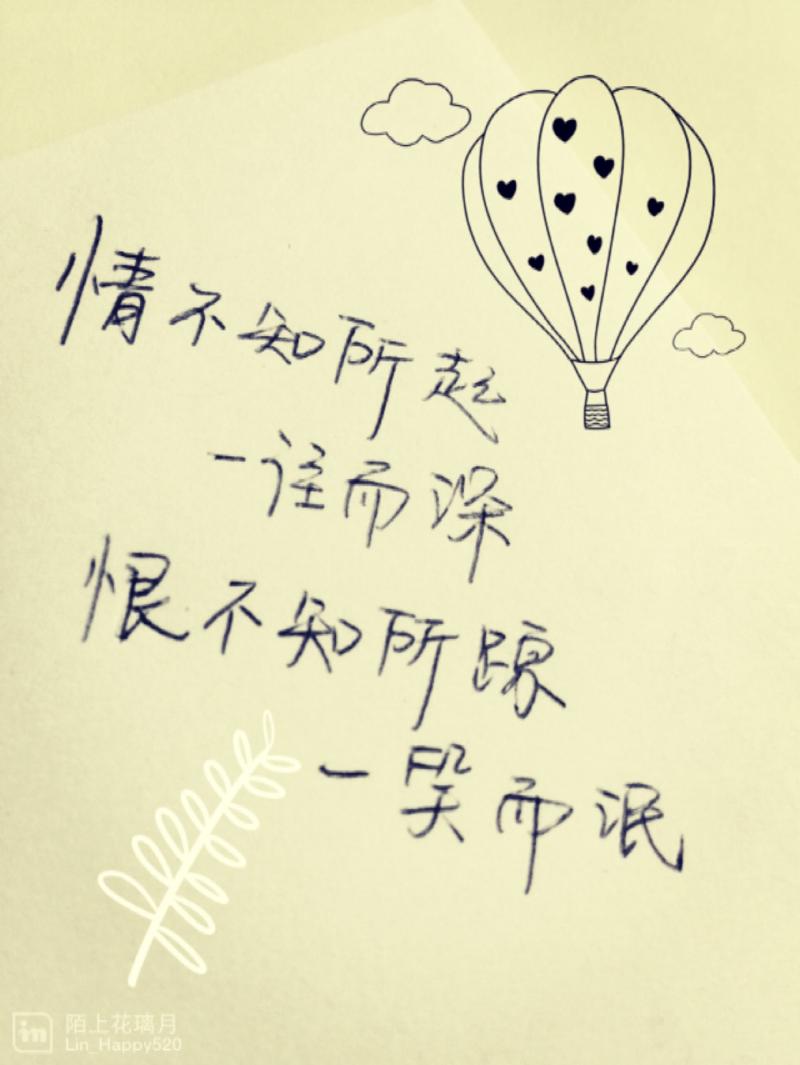 情不知所起
一往而深
恨不知所踪
一笑而泯
in
陌上花璃月
Lin_Happy520